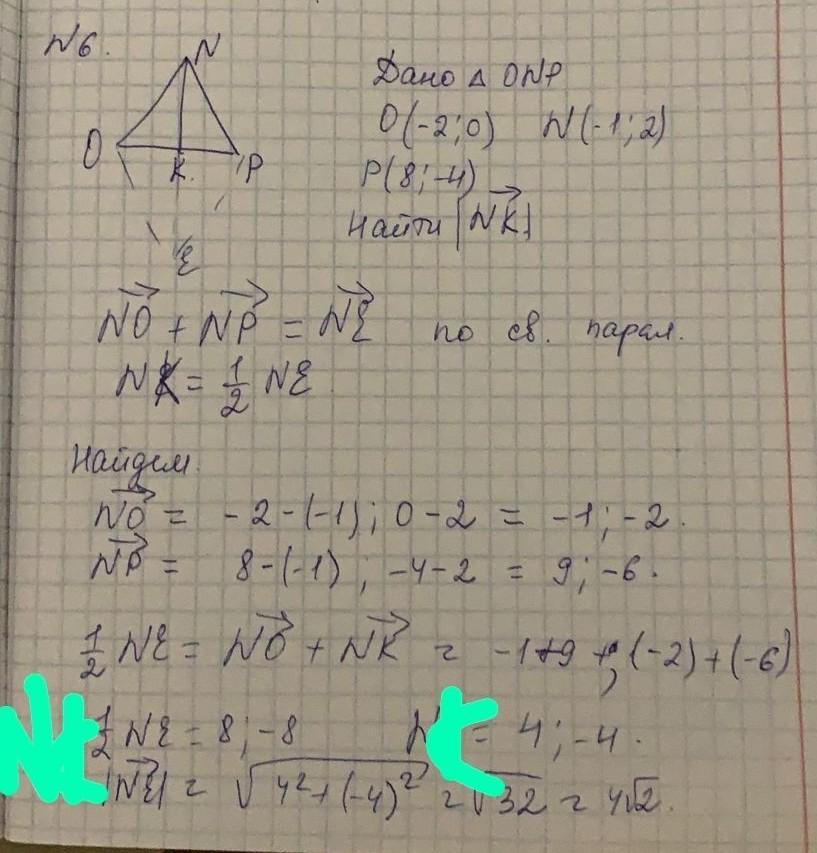 N6.
N
O
K.
P
E
Дано Δ ONP
O(-2;0) N(-1;2)
P(8;-4)
Найти |NK|
NO + NP = NE по св. парал.
NK = 1/2 NE
Найдем.
NO = -2-(-1); 0-2 = -1; -2.
NP = 8-(-1); -4-2 = 9; -6.
1/2 NE = NO + NK = -1+9; (-2)+(-6)
1/2 NE = 8; -8 NK = 4; -4.
|NE| = √4²+(-4)² = √32 = 4√2.